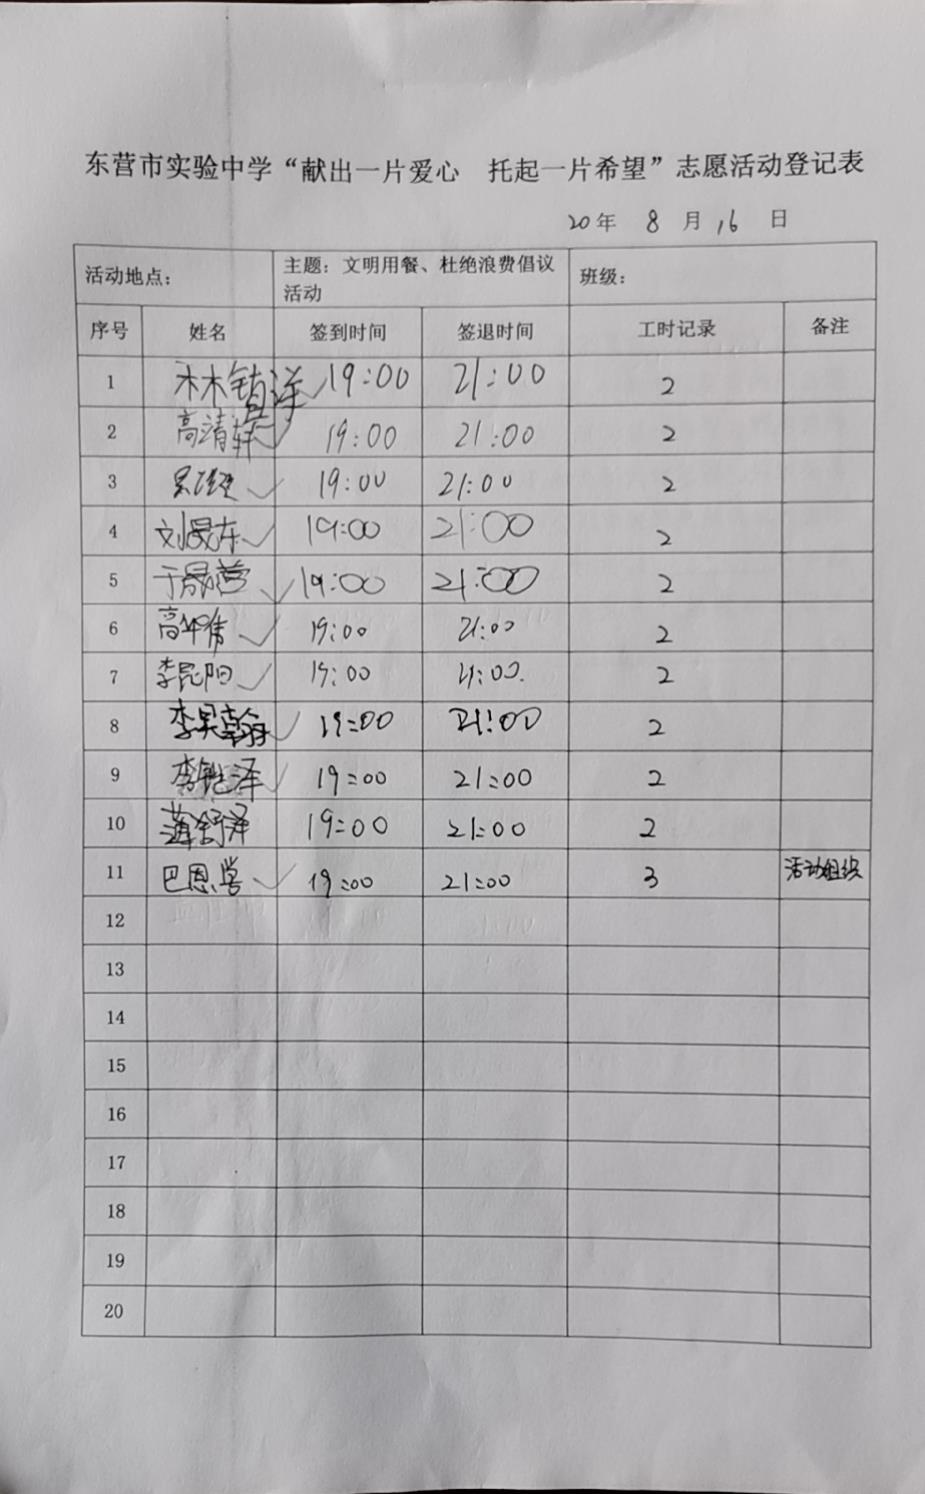 东营市实验中学“献出一片爱心 托起一片希望”志愿活动登记表
20年 8 月 16 日
活动地点： 主题：文明用餐、杜绝浪费倡议活动 班级：
序号 姓名 签到时间 签退时间 工时记录 备注
1 林镇洋 19:00 21:00 2
2 高清轩 19:00 21:00 2
3 19:00 21:00 2
4 刘晟东 19:00 21:00 2
5 于 19:00 21:00 2
6 高 19:00 21:00 2
7 李昆阳 19:00 21:00 2
8 李昊翰 19:00 21:00 2
9 李 泽 19:00 21:00 2
10 薄舒泽 19:00 21:00 2
11 巴恩誉 19:00 21:00 3 活动组织
12
13
14
15
16
17
18
19
20